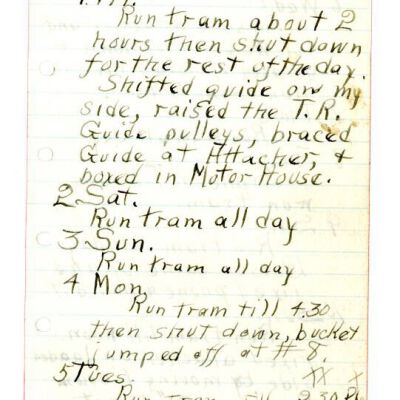 1 Fri.
Run tram about 2
hours then shut down
for the rest of the day.
Shifted guide on my
side, raised the T.R.
Guide pulleys, braced
Guide at Attacher, &
boxed in Motor House.
2 Sat.
Run tram all day
3 Sun.
Run tram all day
4 Mon.
Run tram till 4.30
then shut down, bucket
jumped off at # 8.
5 Tues. XX X
Run tram till 2.30